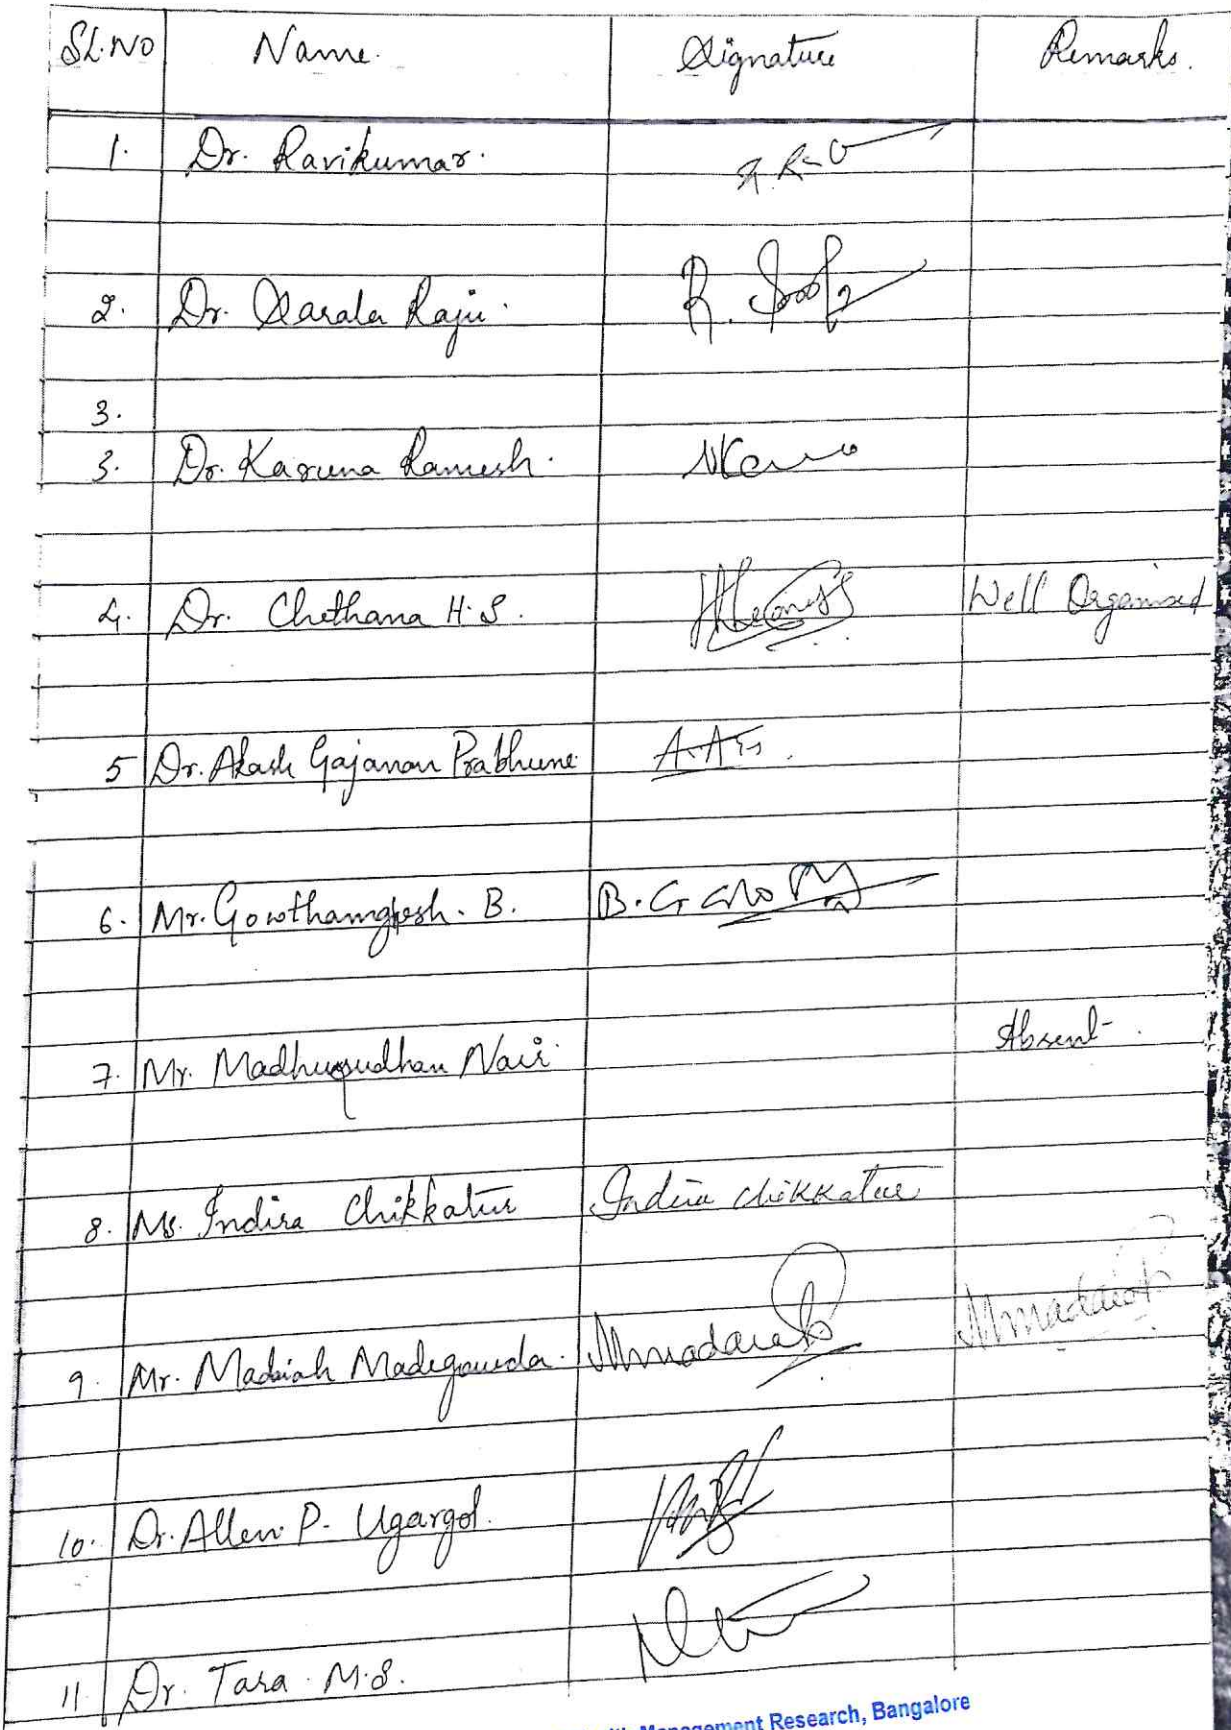 Sl.No Name. Signature Remarks.
1. Dr. Ravikumar.
2. Dr. Sarala Raju.
3.
3. Dr. Karuna Ramesh.
4. Dr. Chethana H.S. Well Organised
5 Dr. Akash Gajanan Prabhune
6. Mr. B.
7. Mr. Madhusudhan Nair. Absent.
8. Ms. Indira Chikkatur Indira chikkatur
9. Mr. Madaiah Madegowda.
10. Dr. Allen P. Ugargol.
11 Dr. Tara M.S.
Management Research, Bangalore